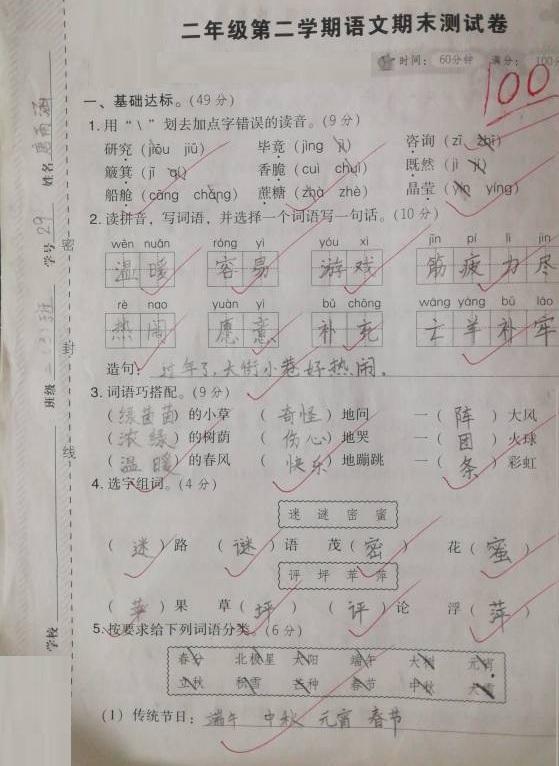 二年级第二学期语文期末测试卷
时间：60分钟 满分：100
100
一、基础达标。(49分)
1.用“\”划去加点字错误的读音。(9分)
研究(jōu jiū) 毕竟(jìng jì) 咨询(zī zhī)
簸箕(jī qí) 香脆(cuì chuì) 既然(jì
船舱(cāng chāng) 蔗糖(zhà zhè) 晶莹(yín yíng)
2.读拼音，写词语，并选择一个词语写一句话。(10分)
wēn nuǎn róng yì yóu xì jīn pí lì jìn
温暖 容易 游戏 筋疲力尽
rè nao yuàn yì bǔ chōng wáng yáng bǔ láo
热闹 愿意 补充 亡羊补牢
造句：过年了，大街小巷好热闹。
3.词语巧搭配。(9分)
(绿茵茵)的小草 (奇怪)地问 一(阵)大风
(浓绿)的树荫 (伤心)地哭 一(团)火球
(温暖)的春风 (快乐)地蹦跳 一(条)彩虹
4.选字组词。(4分)
迷 谜 密 蜜
(迷)路 (谜)语 茂(密) 花(蜜)
评 坪 苹 萍
(苹)果 草(坪) (评)论 浮(萍)
5.按要求给下列词语分类。(6分)
春分 北极星 太阳 端午 大 元宵
立秋 积雪 芒种 春节 中秋 大雪
(1)传统节日：端午 中秋 元宵 春节
学校
班级 二(3)班
学号 29
姓名
密
封
线